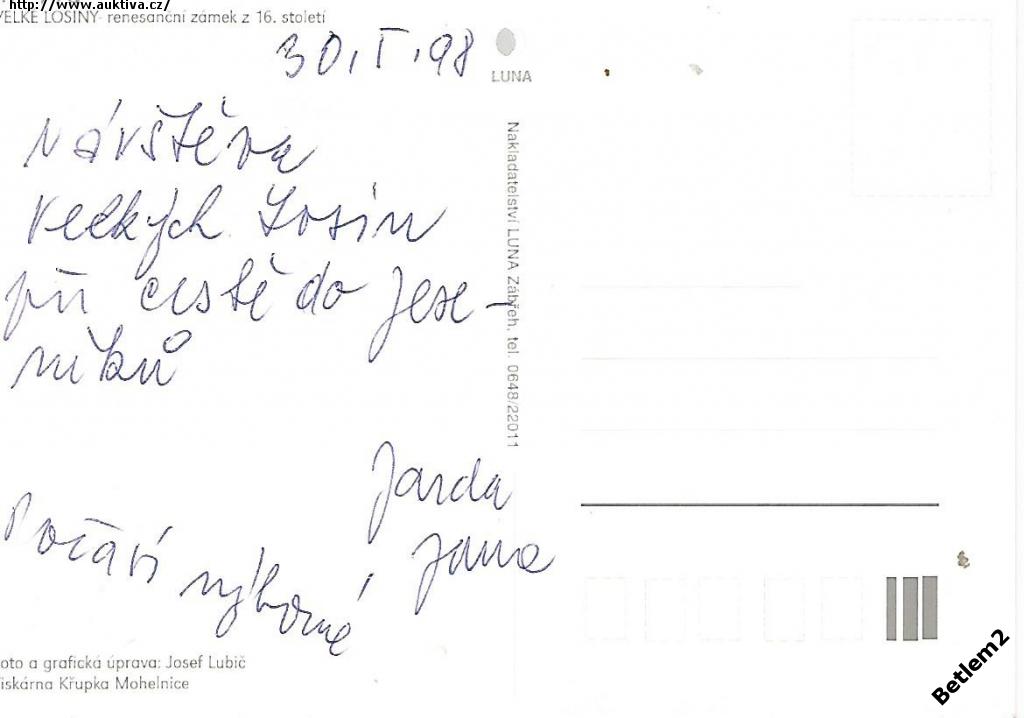 http://www.auktiva.cz/
VELKÉ LOSINY- renesanční zámek z 16. století
30. I. 98
LUNA
Návštěva
Velkých Losin
při cestě do Jese-
níků
Jarda
Jana
Počasí výborné
Nakladatelství LUNA Zábřeh, tel. 0648/22011
oto a grafická úprava: Josef Lubič
iskárna Křupka Mohelnice
Betlem2